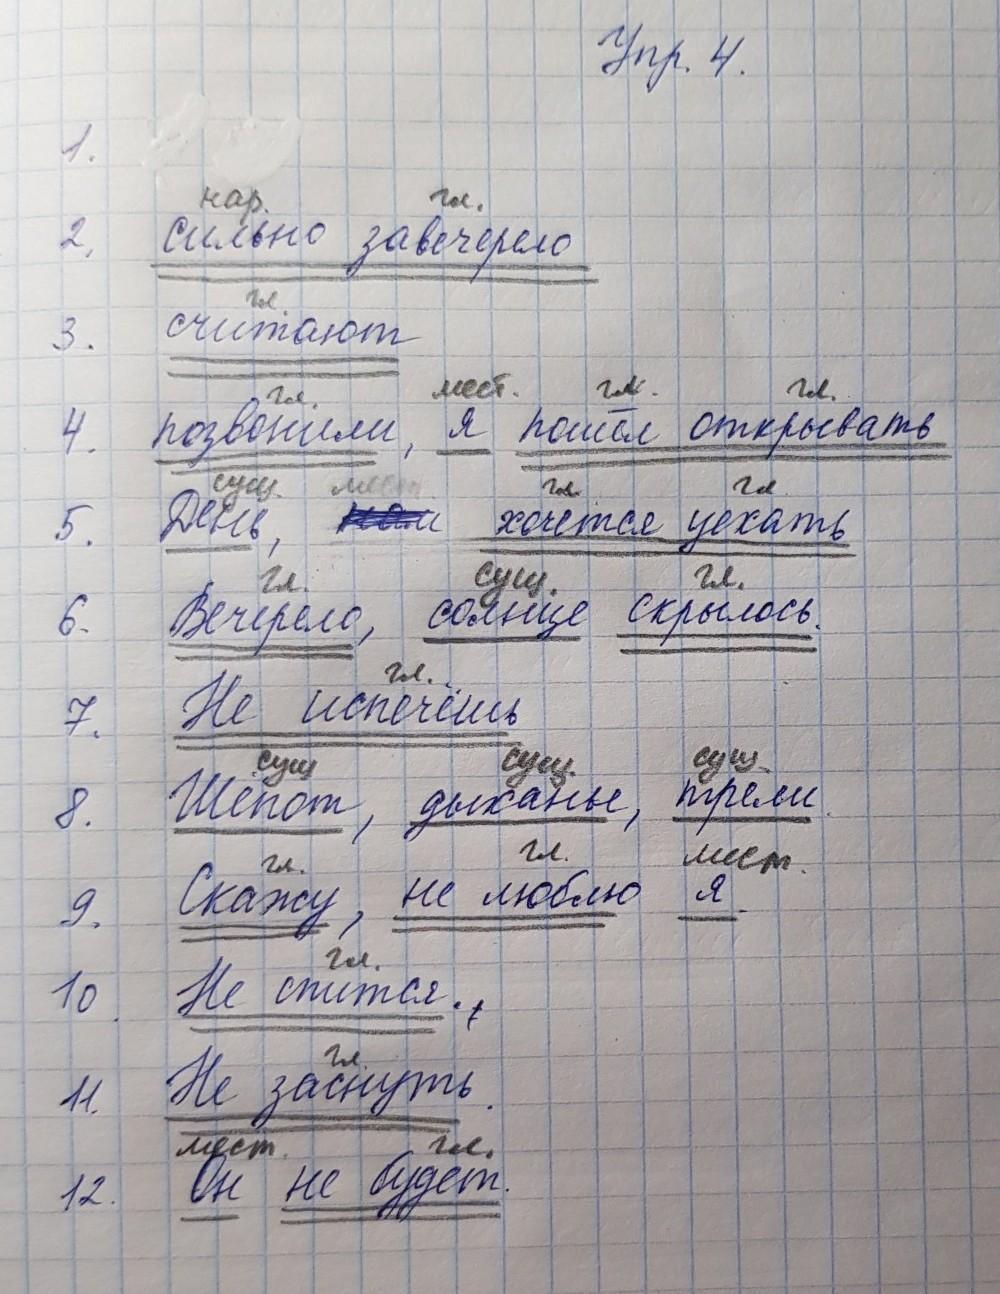 Упр. 4.
1.
нар. гл.
2. сильно завечерело
гл.
3. считают
гл. мест. гл. гл.
4. позвонили, я пошёл открывать
сущ. мест. гл. гл.
5. День, хочется уехать
гл. сущ. гл.
6. Вечерело, солнце скрылось.
гл.
7. Не испечёшь
сущ сущ. сущ.
8. Шёпот, дыханье, трели.
гл. гл. мест.
9. Скажу, не люблю я.
гл.
10. Не спится.,
гл.
11. Не заснуть.
мест. гл.
12. Он не будет.